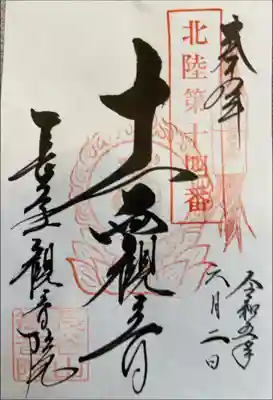 奉拝
北陸第十四番
十一面觀音
觀音院
令和五年
六月二日